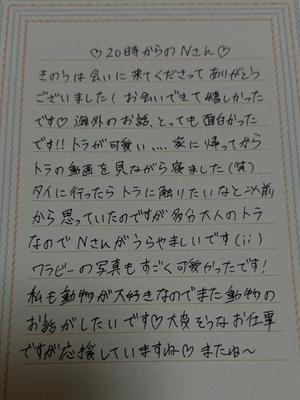 ♡20時からのNさん♡
きのうは会いに来てくださってありがとう
ございました！お会いできて嬉しかった
です♡海外のお話、とっても面白かった
です!!トラが可愛い....家に帰ってから
トラの動画を見ながら寝ました(笑)
タイに行ったらトラに触りたいなと以前
から思っていたのですが多分大人のトラ
なのでNさんがうらやましいです(ii)
ワラビーの写真もすごく可愛かったです！
私も動物が大好きなのでまた動物の
お話がしたいです♡大変そうなお仕事
ですが応援していますね♡またね〜